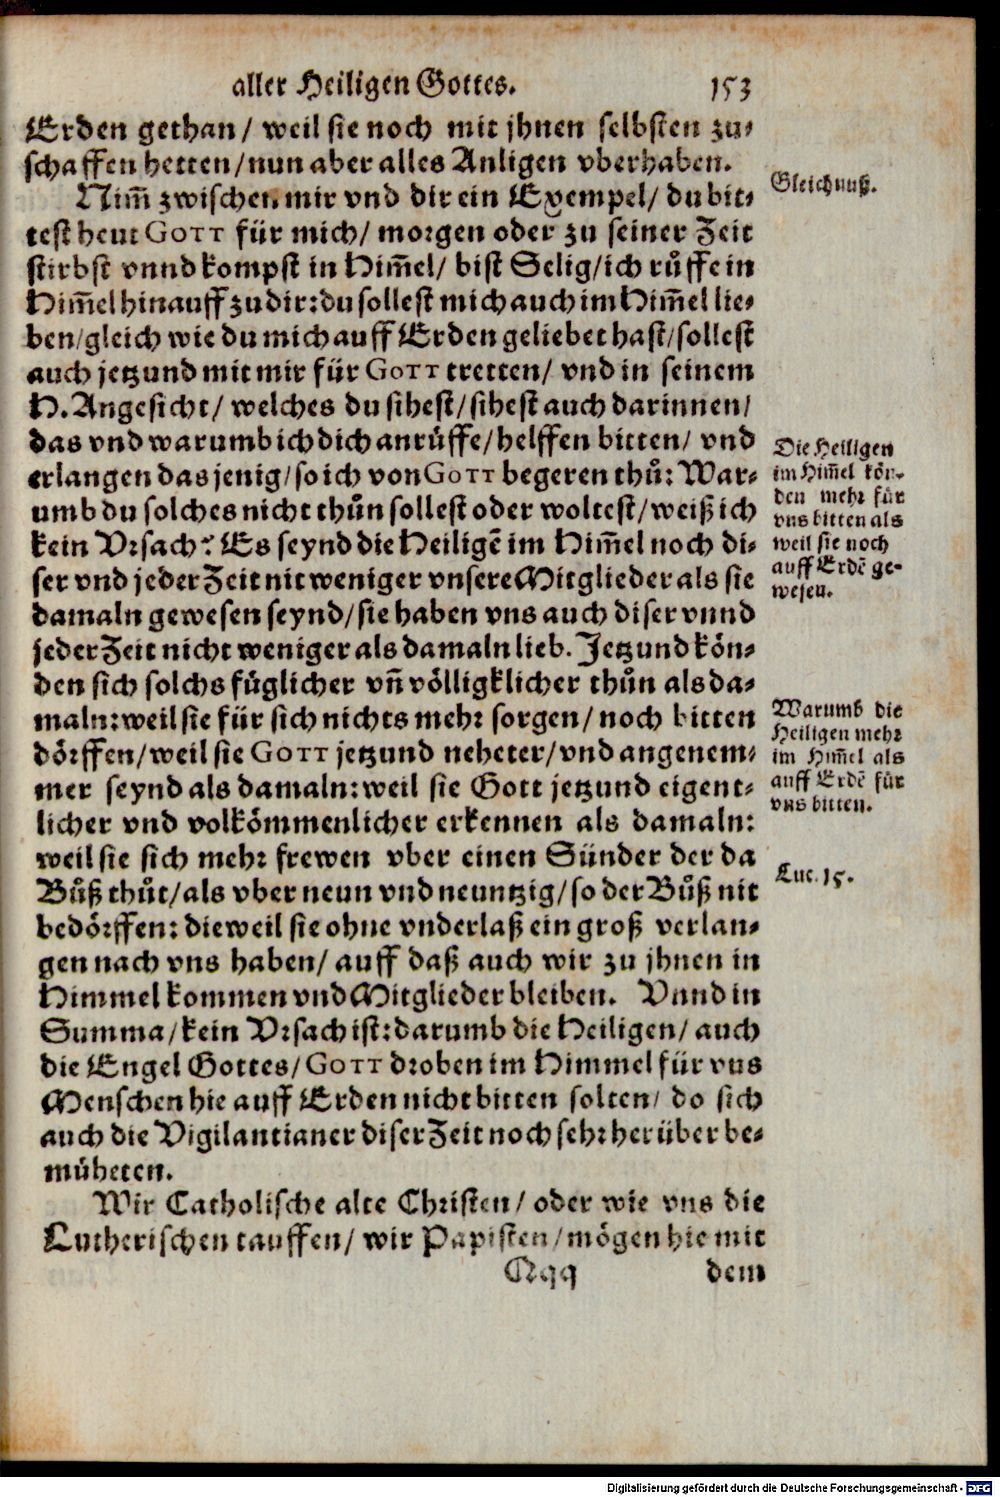 aller Heiligen Gottes. 153
Erden gethan/ weil sie noch mit jhnen selbsten zu-
schaffen hetten/ nun aber alles Anligen vberhaben.
Nim̄ zwischen mir vnd dir ein Exempel/ du bit-
test heut GOTT für mich/ morgen oder zu seiner Zeit
stirbst vnnd kompst in Him̄el/ bist Selig/ ich růffe in
Him̄el hinauff zu dir: du sollest mich auch im Him̄el lie-
ben/ gleich wie du mich auff Erden geliebet hast/ sollest
auch jetzund mit mir für GOTT tretten/ vnd in seinem
H. Angesicht/ welches du sihest/ sihest auch darinnen/
das vnd warumb ich dich anrůffe/ helffen bitten/ vnd
erlangen das jenig/ so ich von GOTT begeren thů: War-
umb du solches nicht thůn sollest oder woltest/ weiß ich
kein Vrsach? Es seynd die Heiligē im Him̄el noch di-
ser vnd jeder Zeit nit weniger vnsere Mitglieder als sie
damaln gewesen seynd/ sie haben vns auch diser vnnd
jeder Zeit nicht weniger als damaln lieb. Jetzund kön-
den sich solchs füglicher vn̄ völligklicher thůn als da-
maln: weil sie für sich nichts mehr sorgen/ noch bitten
dörffen/ weil sie GOTT jetzund neheter/ vnd angenem-
mer seynd als damaln: weil sie Gott jetzund eigent-
licher vnd volkömmenlicher erkennen als damaln:
weil sie sich mehr frewen vber einen Sünder der da
Bůß thůt/ als vber neun vnd neuntzig/ so der Bůß nit
bedörffen: dieweil sie ohne vnderlaß ein groß verlan-
gen nach vns haben/ auff daß auch wir zu jhnen in
Himmel kommen vnd Mitglieder bleiben. Vnnd in
Summa/ kein Vrsach ist: darumb die Heiligen/ auch
die Engel Gottes/ GOTT droben im Himmel für vns
Menschen hie auff Erden nicht bitten solten/ do sich
auch die Vigilantianer diser Zeit noch sehr herüber be-
můheten.
Wir Catholische alte Christen/ oder wie vns die
Lutherischen tauffen/ wir Papisten/ mögen hie mit
Qqq dem
Gleichnuß.
Die Heiligen
im Him̄el kön-
den mehr für
vns bitten als
weil sie noch
auff Erdē ge-
wesen.
Warumb die
Heiligen mehr
im Him̄el als
auff Erdē für
vns bitten.
Luc. 15.
Digitalisierung gefördert durch die Deutsche Forschungsgemeinschaft - DFG